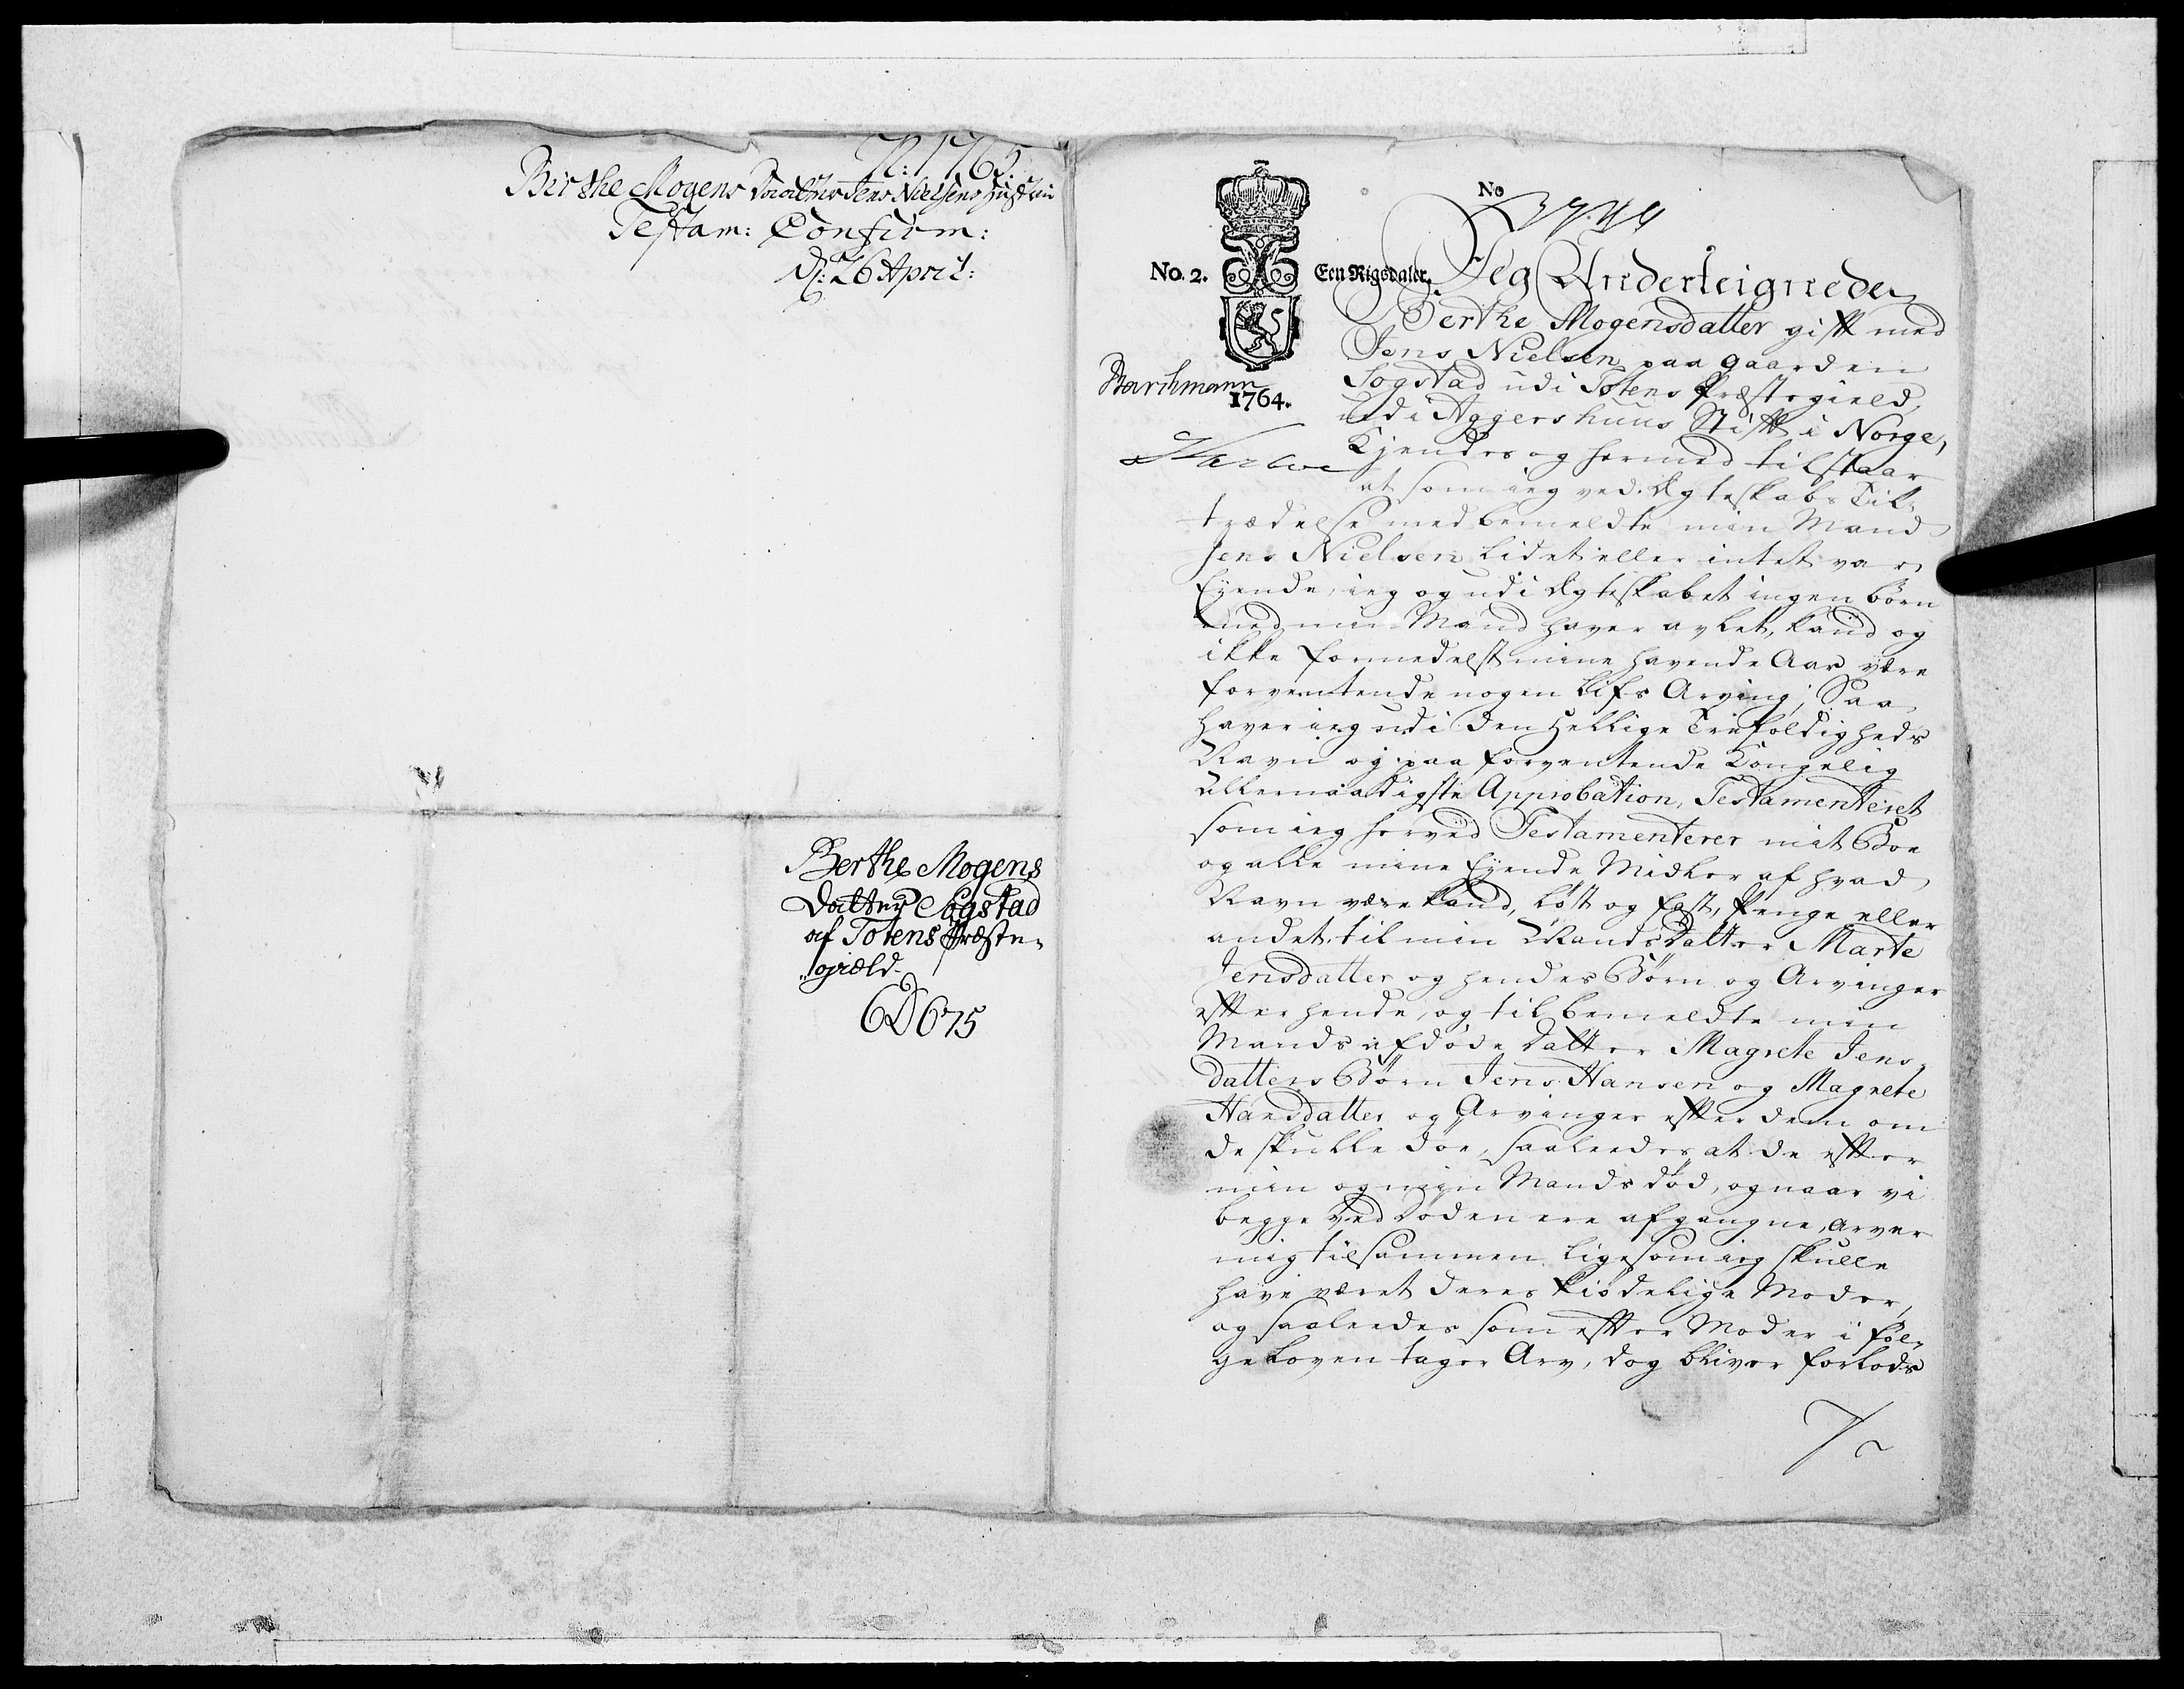 N: 1765.
Birthe Mogens Daatter Jens Nielsens Hustrue
Testam: Confirm:
d: 26 April:
Berthe Mogens
Datter Sogstad
af Totens Præste-
gield.
6D675
No
No. 2.
Een Rigsdaler.
1764.
Barchmann
Jeg Underteignede
Berthe Mogensdatter gift med
Jens Nielsen paa gaarden
Sogstad udi Totens Præstegield,
udi Aggershuus Stift i Norge,
Kjendes og hermed tilstaar
at som ieg ved Ægteskabs Til-
trædelse med bemeldte min Mand
Jens Nielsen lidet eller intet var
Eyende, ieg og udi Ægteskabet ingen børn
med min Mand haver avlet, kand og
ikke formedelst mine havende Aar være
forventende nogen Lifs Arving; Saa
haver ieg udi den Hellige Trefoldigheds
Navn og paa forventende Kongelig
allernaadigste Approbation, Testamenteret
som ieg herved Testamenterer mit Boe
og alle mine Eyende Midler af hvad
Navn være kand, løst og fast, Penge eller
andet, til min Mands Datter Marte
Jensdatter og hendes Børn og Arvinger
efter hende, og til bemeldte min
Mands afdøde Datter Magrete Jens-
datters Børn Jens Hansen og Magrete
Hansdatter og Arvinger efter dem om
de skulle døe, saaleedes at de efter
min og min Mands død, og naar vi
begge ved Døden ere afgangne, arver
mig tilsammen ligesom ieg skulle
have været deres kiødelige Moder,
og saaleedes som efter Moder i føl-
ge Loven tager Arv, dog bliver forlods